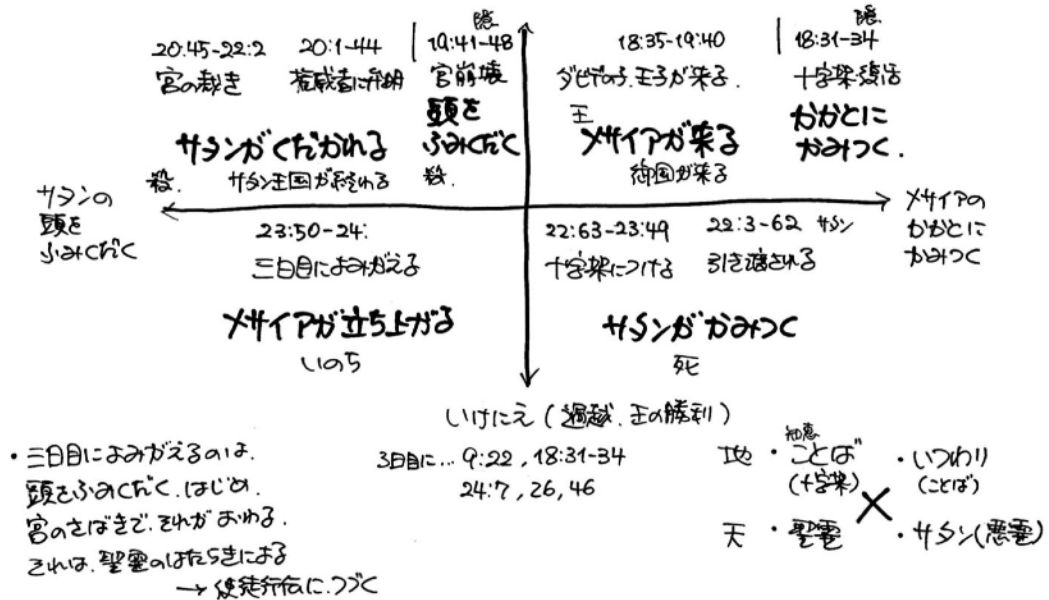 隠
隠
20:45-22:2 20:1-44 19:41-48 18:35-19:40 18:31-34
宮の裁き 惑者に弁明 宮崩壊 ダビデの子、王子が来る. 十字架・復活
頭を 王 かかとに
サタンがくだかれる ふみくだく メサイアが来る かみつく.
殺. サタン王国が終わる 殺. 御国が来る
サタンの
頭を
ふみくだく
メサイアの
かかとに
かみつく
23:50-24: 22:63-23:49 22:3-62 サタン
三日目によみがえる 十字架につける 引き渡される
メサイアが立ち上がる サタンがかみつく
いのち 死
いけにえ(過越、王の勝利)
・三日目によみがえるのは、
頭をふみくだく、はじめ.
宮のさばきで、それがおわる.
それは、聖霊のはたらきによる
→使徒行伝に、つづく
3日目に… 9:22, 18:31-34
24:7, 26, 46
知恵
地 ・ことば ・いつわり
(十字架) × (ことば)
天 ・聖霊 ・サタン(悪霊)